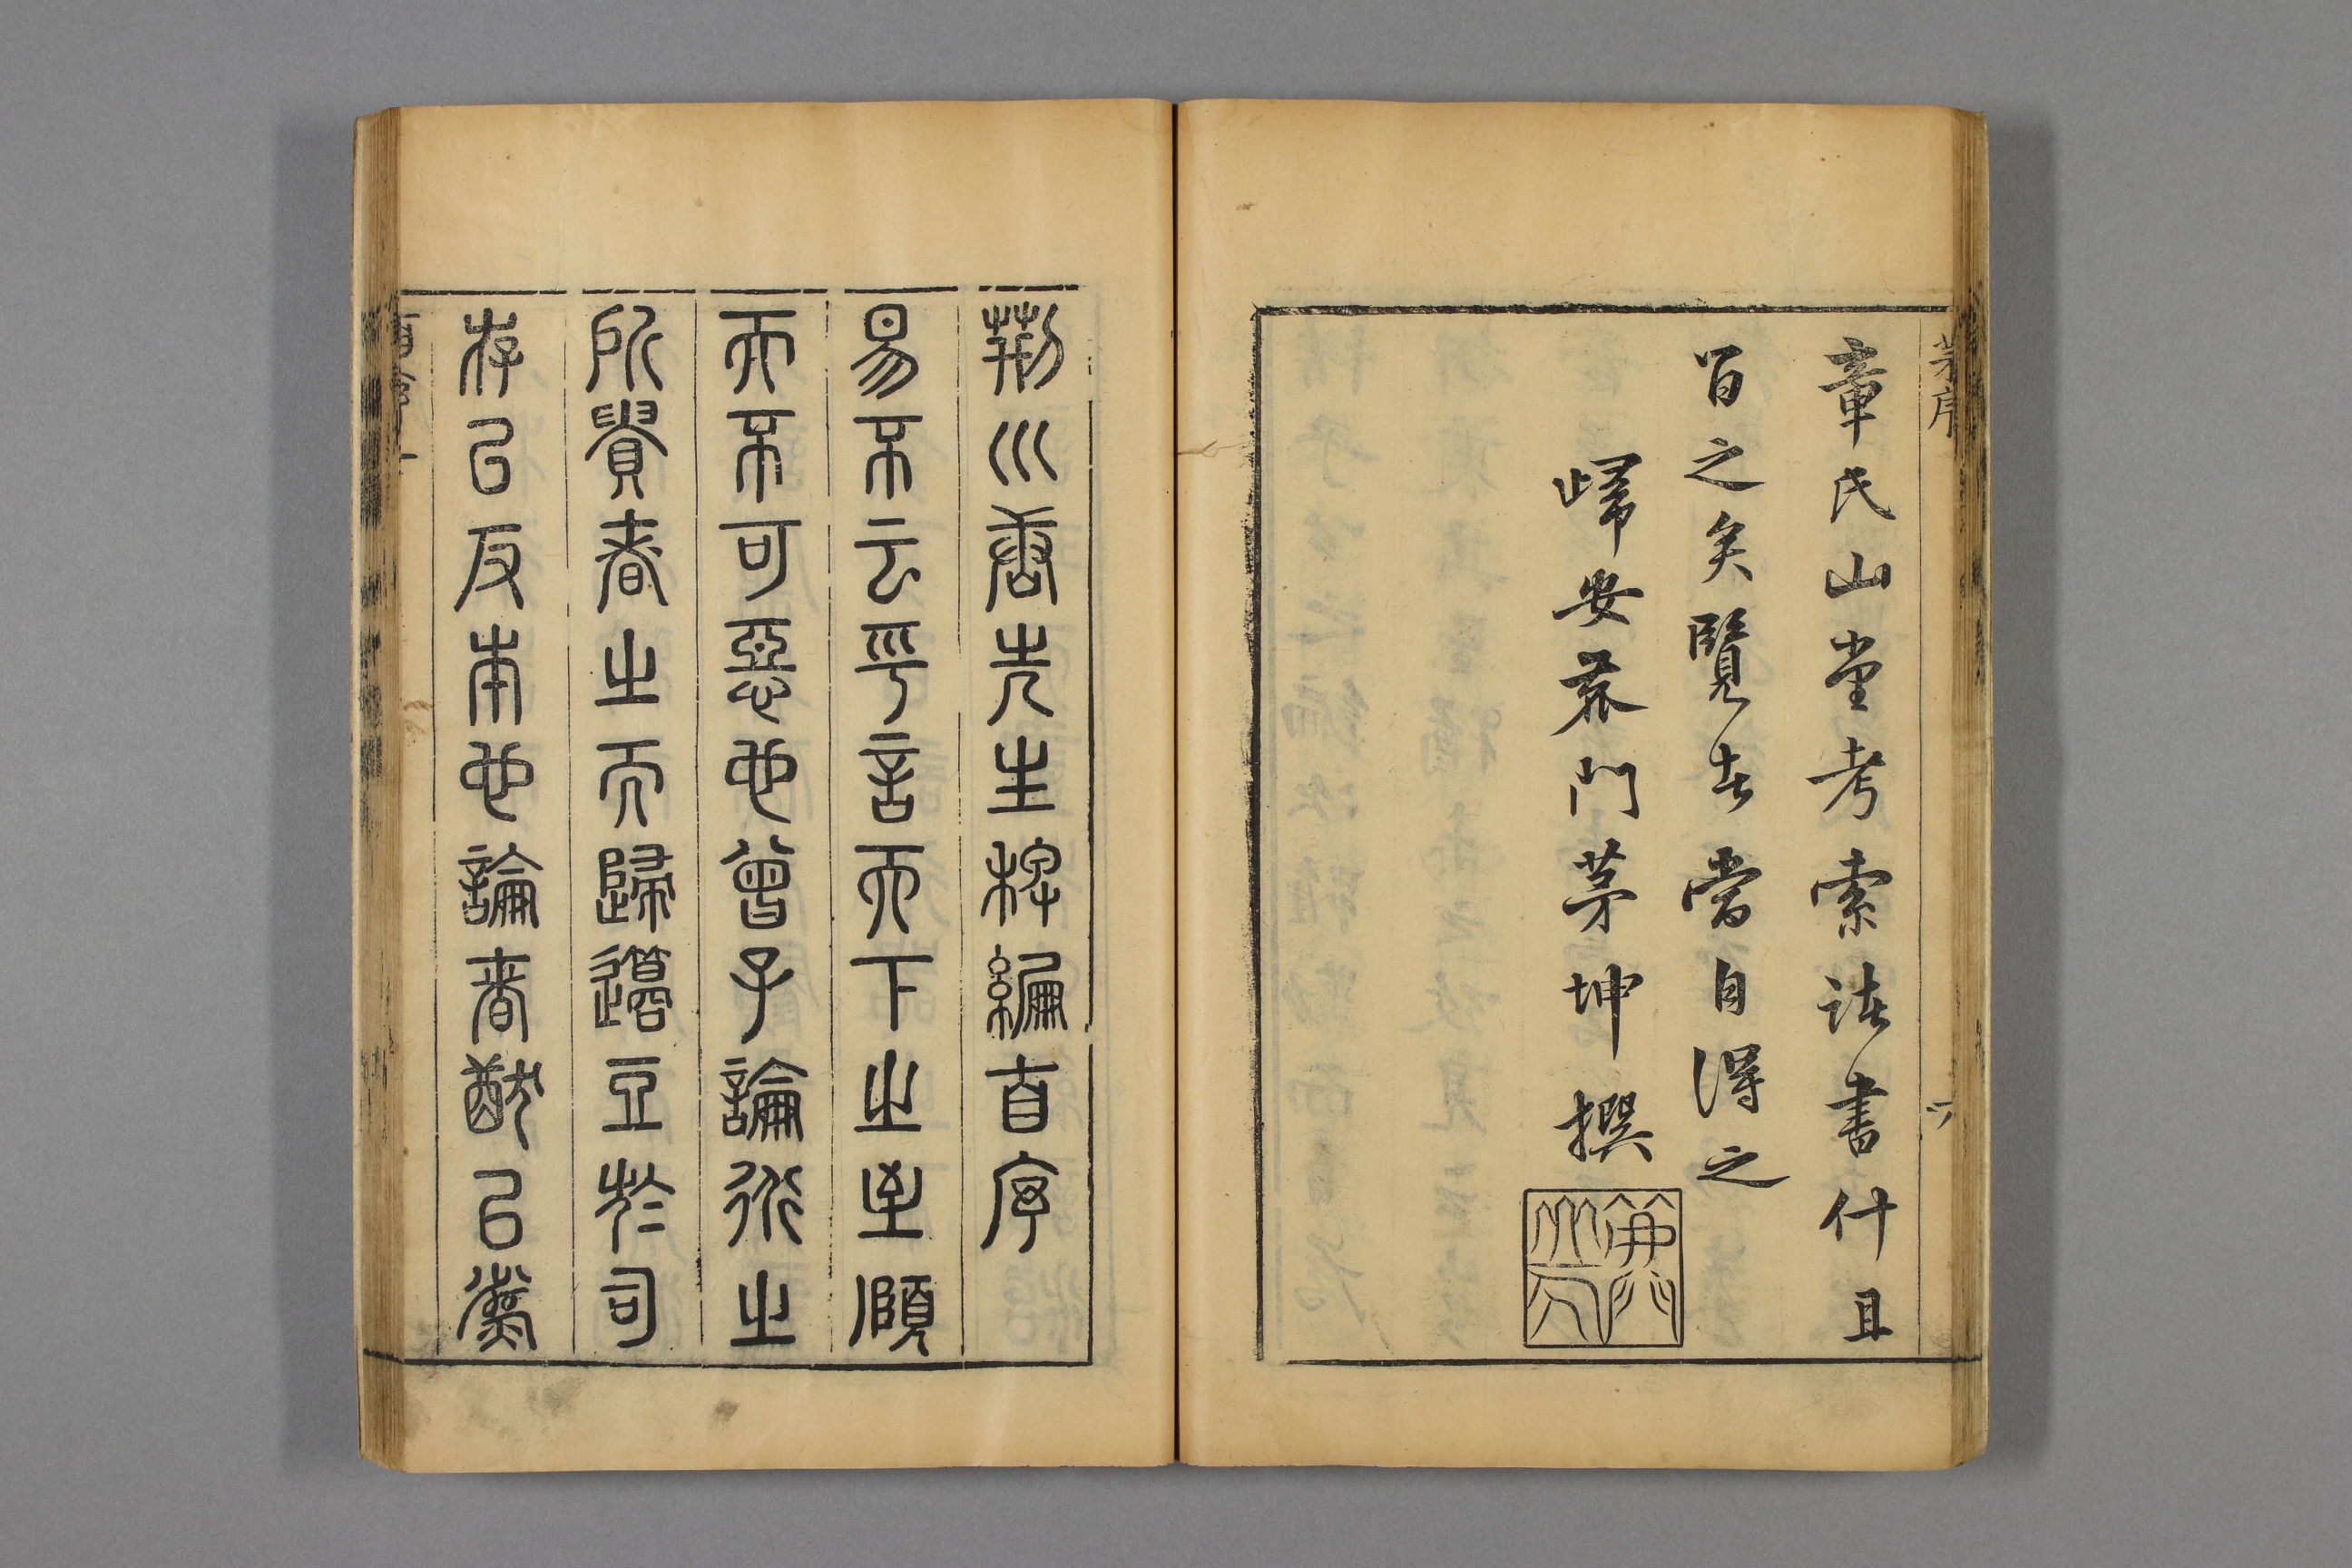 茅序
章氏山堂考索諸書什且
百之矣覽者當自得之
歸安鹿門茅坤撰
六
荊川唐先生稗編首序
易不云乎言天下之至賾
而不可惡也曾子論道之
所貴者三而歸籩豆於司
存以反本也論者猷以藝